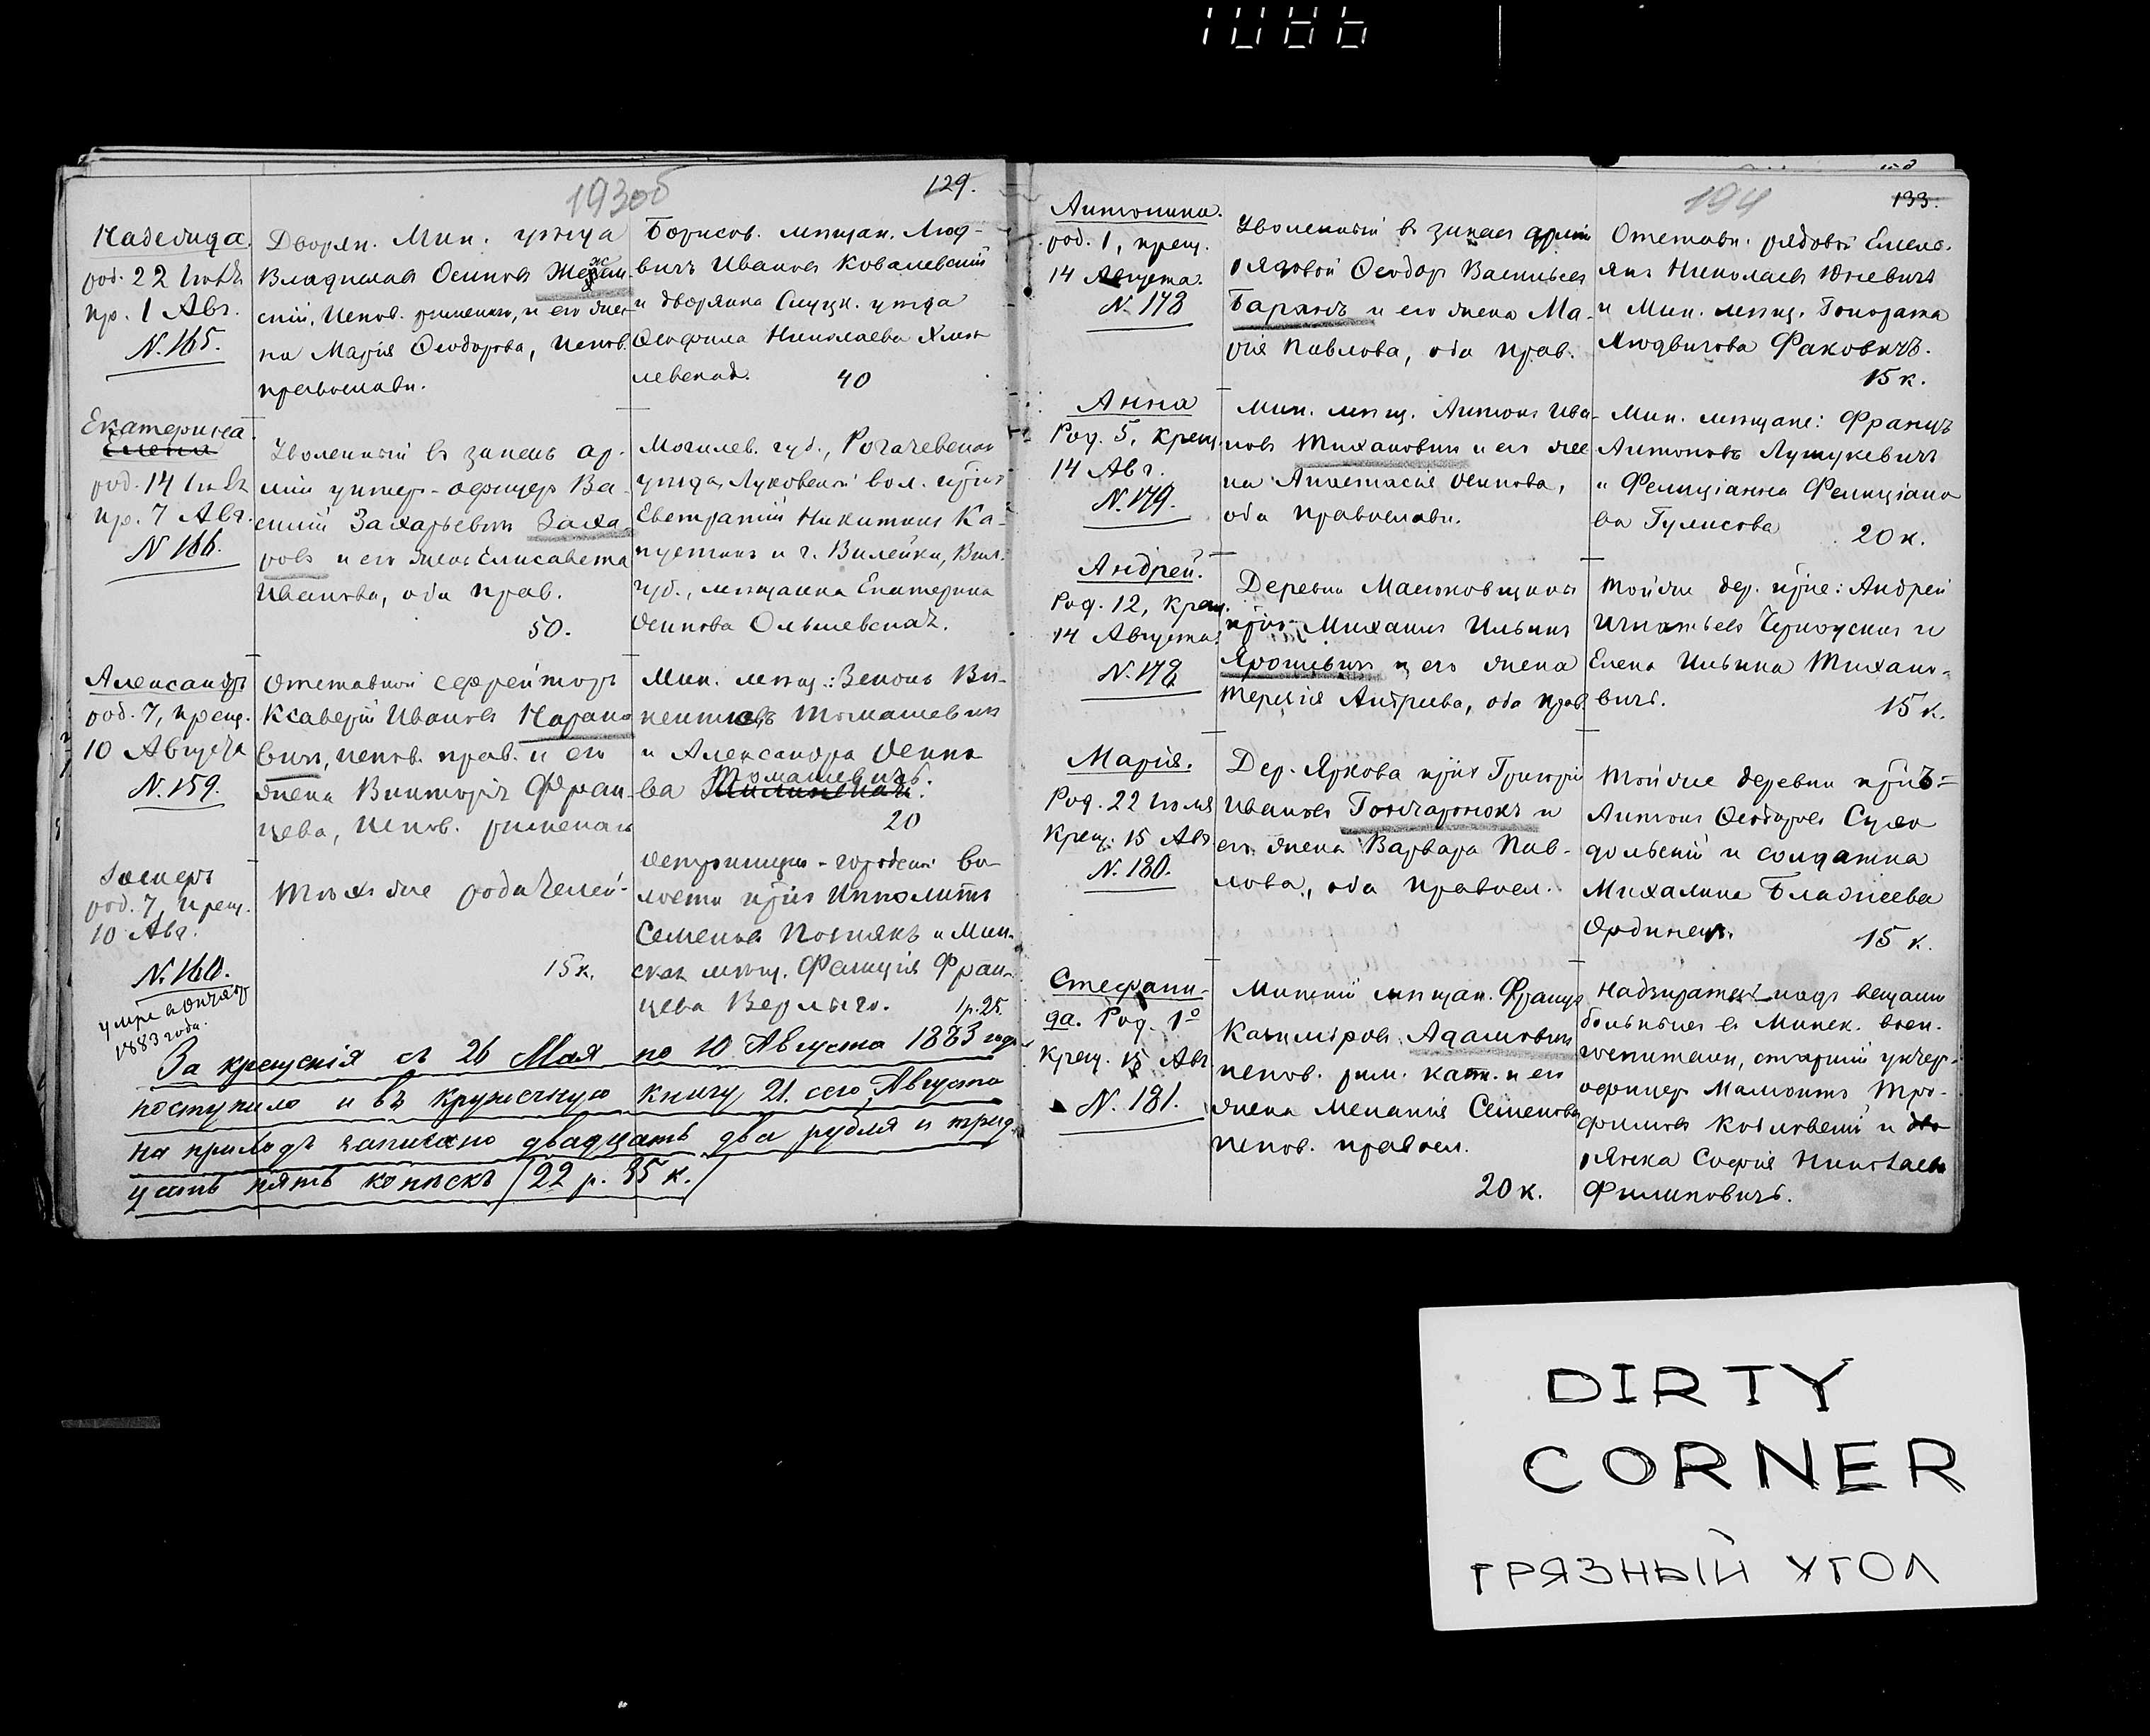 1086
193об
129.
Надежда.
род. 22 Іюля
кр. 1 Авг.
N. 165.
Дворян. Мин. уѣзда
Владиславъ Осиповъ
скій, испов. римскаго, и его же-
на Марія Ѳеодорова, испов.
православн.
Борисов. мѣщан. Люд-
вигъ Ивановъ Ковалевскій
и дворянка Слуцк. уѣзда
Ѳеофила Николаева Хмѣ
левская.
40
Екатерина.
Елена
род. 14 Іюля
кр. 7 Авг.
N 166.
Уволенный въ запасъ ар-
міи унтер-офицеръ Ва-
силій Захарьевичъ Заха-
ровъ и его жена Елисавета
Иванова, оба прав.
50.
Могилев. губ., Рогачевскаго
уѣзда, Луковской вол. кр-нъ
Евстратій Никитинъ Ка-
пустинъ и г. Вилейки, Вил.
губ., мѣщанка Екатерина
Осипова Ольшевская.
Александръ
род. 7, крещ.
10 Августа
N. 159.
Отставной ефрейторъ
Ксаверій Ивановъ Карано
вичъ, испов. прав. и его
жена Викторія Фран-
цева, испов. римская
Мин. мѣщ.: Зенонъ Ви-
кентьевъ Томашевичъ
и Александра Осипо
ва Томашевичъ.
20
Іосифъ
род. 7, крещ.
10 Авг.
N. 160.
умре в Октябр
1883 года.
Тѣхъ же родителей-
15 к.
Острошицко-городской во-
лости кр-нъ Ипполитъ
Семеновъ Познякъ и Мин-
ская мѣщ. Фелиція Фран-
цева Верлыго.
1 р. 25.
За крещенія съ 26 Мая по 10 Августа 1883 года
поступило и въ кружечную книгу 21. сего Августа
на приходъ записано двадцать два рубля и трид-
цать пять копѣекъ (22 р. 35 к.)
194
133.
Антонина.
род. 1, крещ.
14 Августа.
N. 178
Уволенный въ запасъ арміи
рядовой Ѳеодоръ Васильевъ
Барановъ и его жена Ма-
рія Павлова, оба прав.
Отставн. рядовой Емель-
янъ Николаевъ Юневичъ
и Мин. мѣщ. Гонората
Людвигова Факовичъ.
15 к.
Анна
Род. 5, крещ.
14 Авг.
N. 179.
Мин. мѣщ. Антонъ Ива-
новъ Тихановичъ и его же
на Анастасія Осипова,
оба православн.
Мин. мѣщане: Францъ
Антоновъ Лутукевичъ
и Фелиціанна Фелиціано
ва Гулисова
20 к.
Андрей.
Род. 12, крещ.
14 Августа.
N. 178
Деревни Масюковщины
кр-нъ Михаилъ Ильинъ
Ярошевичъ и его жена
Терезія Андреева, оба прав.
Той же дер. кр-не: Андрей
Игнатьевъ Черноусикъ и
Елена Ильина Тихано-
вичъ.
15 к.
Марія.
Род. 22 Іюля
Крещ. 15 Авг
N. 180.
Дер. Яркова кр-нъ Григорій
Ивановъ Гончаронокъ и
его жена Варвара Пав-
лова, оба правосл.
Той же деревни кр-нъ=
Антонъ Ѳеодоровъ Сухо
дольскій и солдатка
Михалина Блажеева
Ординецъ.
15 к.
Стефани-
да. Род. 1º
крещ. 15 Авг.
N. 181.
Минскій мѣщан. Францъ
Казиміровъ Адамовичъ
испов. рим. катол. и его
жена Меланія Семенова
испов. правосл.
20 к.
Надзиратель надъ вещами
больныхъ въ Минск. воен.
госпитали, старшій унтер-
офицеръ Мамонтъ Тро-
фимовъ Козловскій и дво
рянка Софія Николаева
Филиповичъ.
DIRTY
CORNER
ГРЯЗНЫЙ УГОЛ